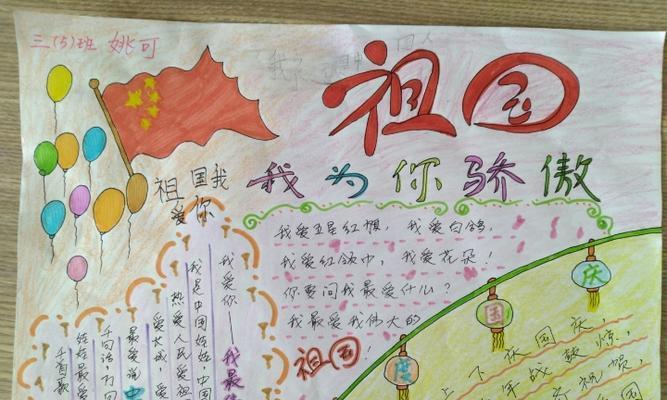 三(5)班 姚可
祖国
我为你骄傲
祖国我
爱你
我爱五星红旗，我爱白鸽，
我爱红领巾，我爱花朵！
你要问我最爱什么？
我最爱我伟大的
祖国！
我爱你——我最
我是中国娃娃，中国
热爱人民爱祖
爱大城，爱
最爱说中
千句话，万
娃娃最爱
千首歌
国庆
上下庆国庆，
年战鼓惊，
祝贺，